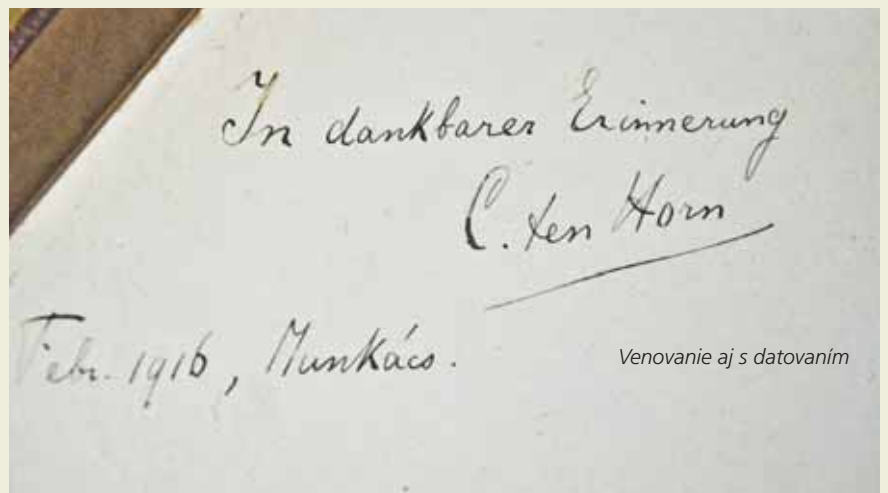 In dankbarer Erinnerung
C. ten Horn
Febr. 1916, Munkács.
Venovanie aj s datovaním